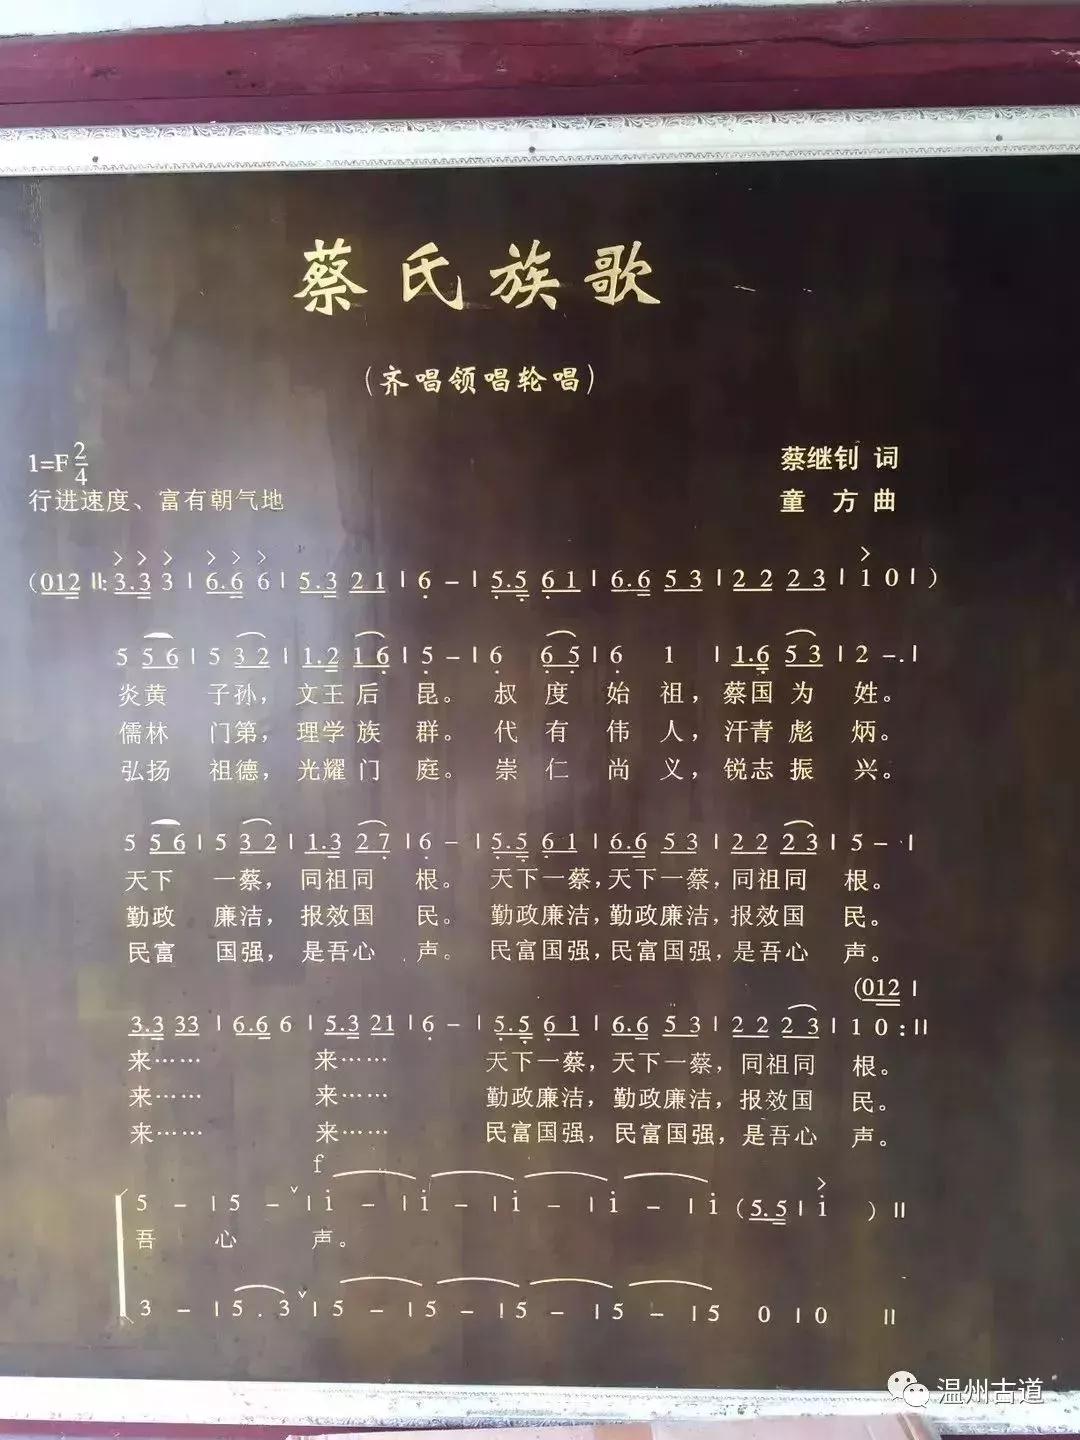 蔡氏族歌
(齐唱领唱轮唱)
1=F 2/4
蔡继钊 词
行进速度、富有朝气地
童 方 曲
(012 ‖: 3.3 3 | 6.6 6 | 5.3 21 | 6 - | 5.5 61 | 6.6 53 | 22 23 | 1 0 | )
5 56 | 5 32 | 1.2 16 | 5 - | 6 65 | 6 1 | 1.6 53 | 2 -. |
炎黄 子孙，文王后 昆。叔 度 始 祖，蔡国为 姓。
儒林 门第，理学族 群。代 有 伟 人，汗青彪 炳。
弘扬 祖德，光耀门 庭。崇 仁 尚 义，锐志振 兴。
5 56 | 5 32 | 1.3 27 | 6 - | 5.5 61 | 6.6 53 | 22 23 | 5 - |
天下 一蔡，同祖同 根。天下一蔡，天下一蔡，同祖同 根。
勤政 廉洁，报效国 民。勤政廉洁，勤政廉洁，报效国 民。
民富 国强，是吾心 声。民富国强，民富国强，是吾心 声。
(012 |
3.3 33 | 6.6 6 | 5.3 21 | 6 - | 5.5 61 | 6.6 53 | 22 23 | 1 0 :‖
来…… 来…… 天下一蔡，天下一蔡，同祖同 根。
来…… 来…… 勤政廉洁，勤政廉洁，报效国 民。
来…… 来…… 民富国强，民富国强，是吾心 声。
f
5 - | 5 - ˅| i - | i - | i - | i - | i (5.5 | i ) ‖
吾 心 声。
3 - | 5 . 3 ˅| 5 - | 5 - | 5 - | 5 - | 5 0 | 0 ‖
温州古道